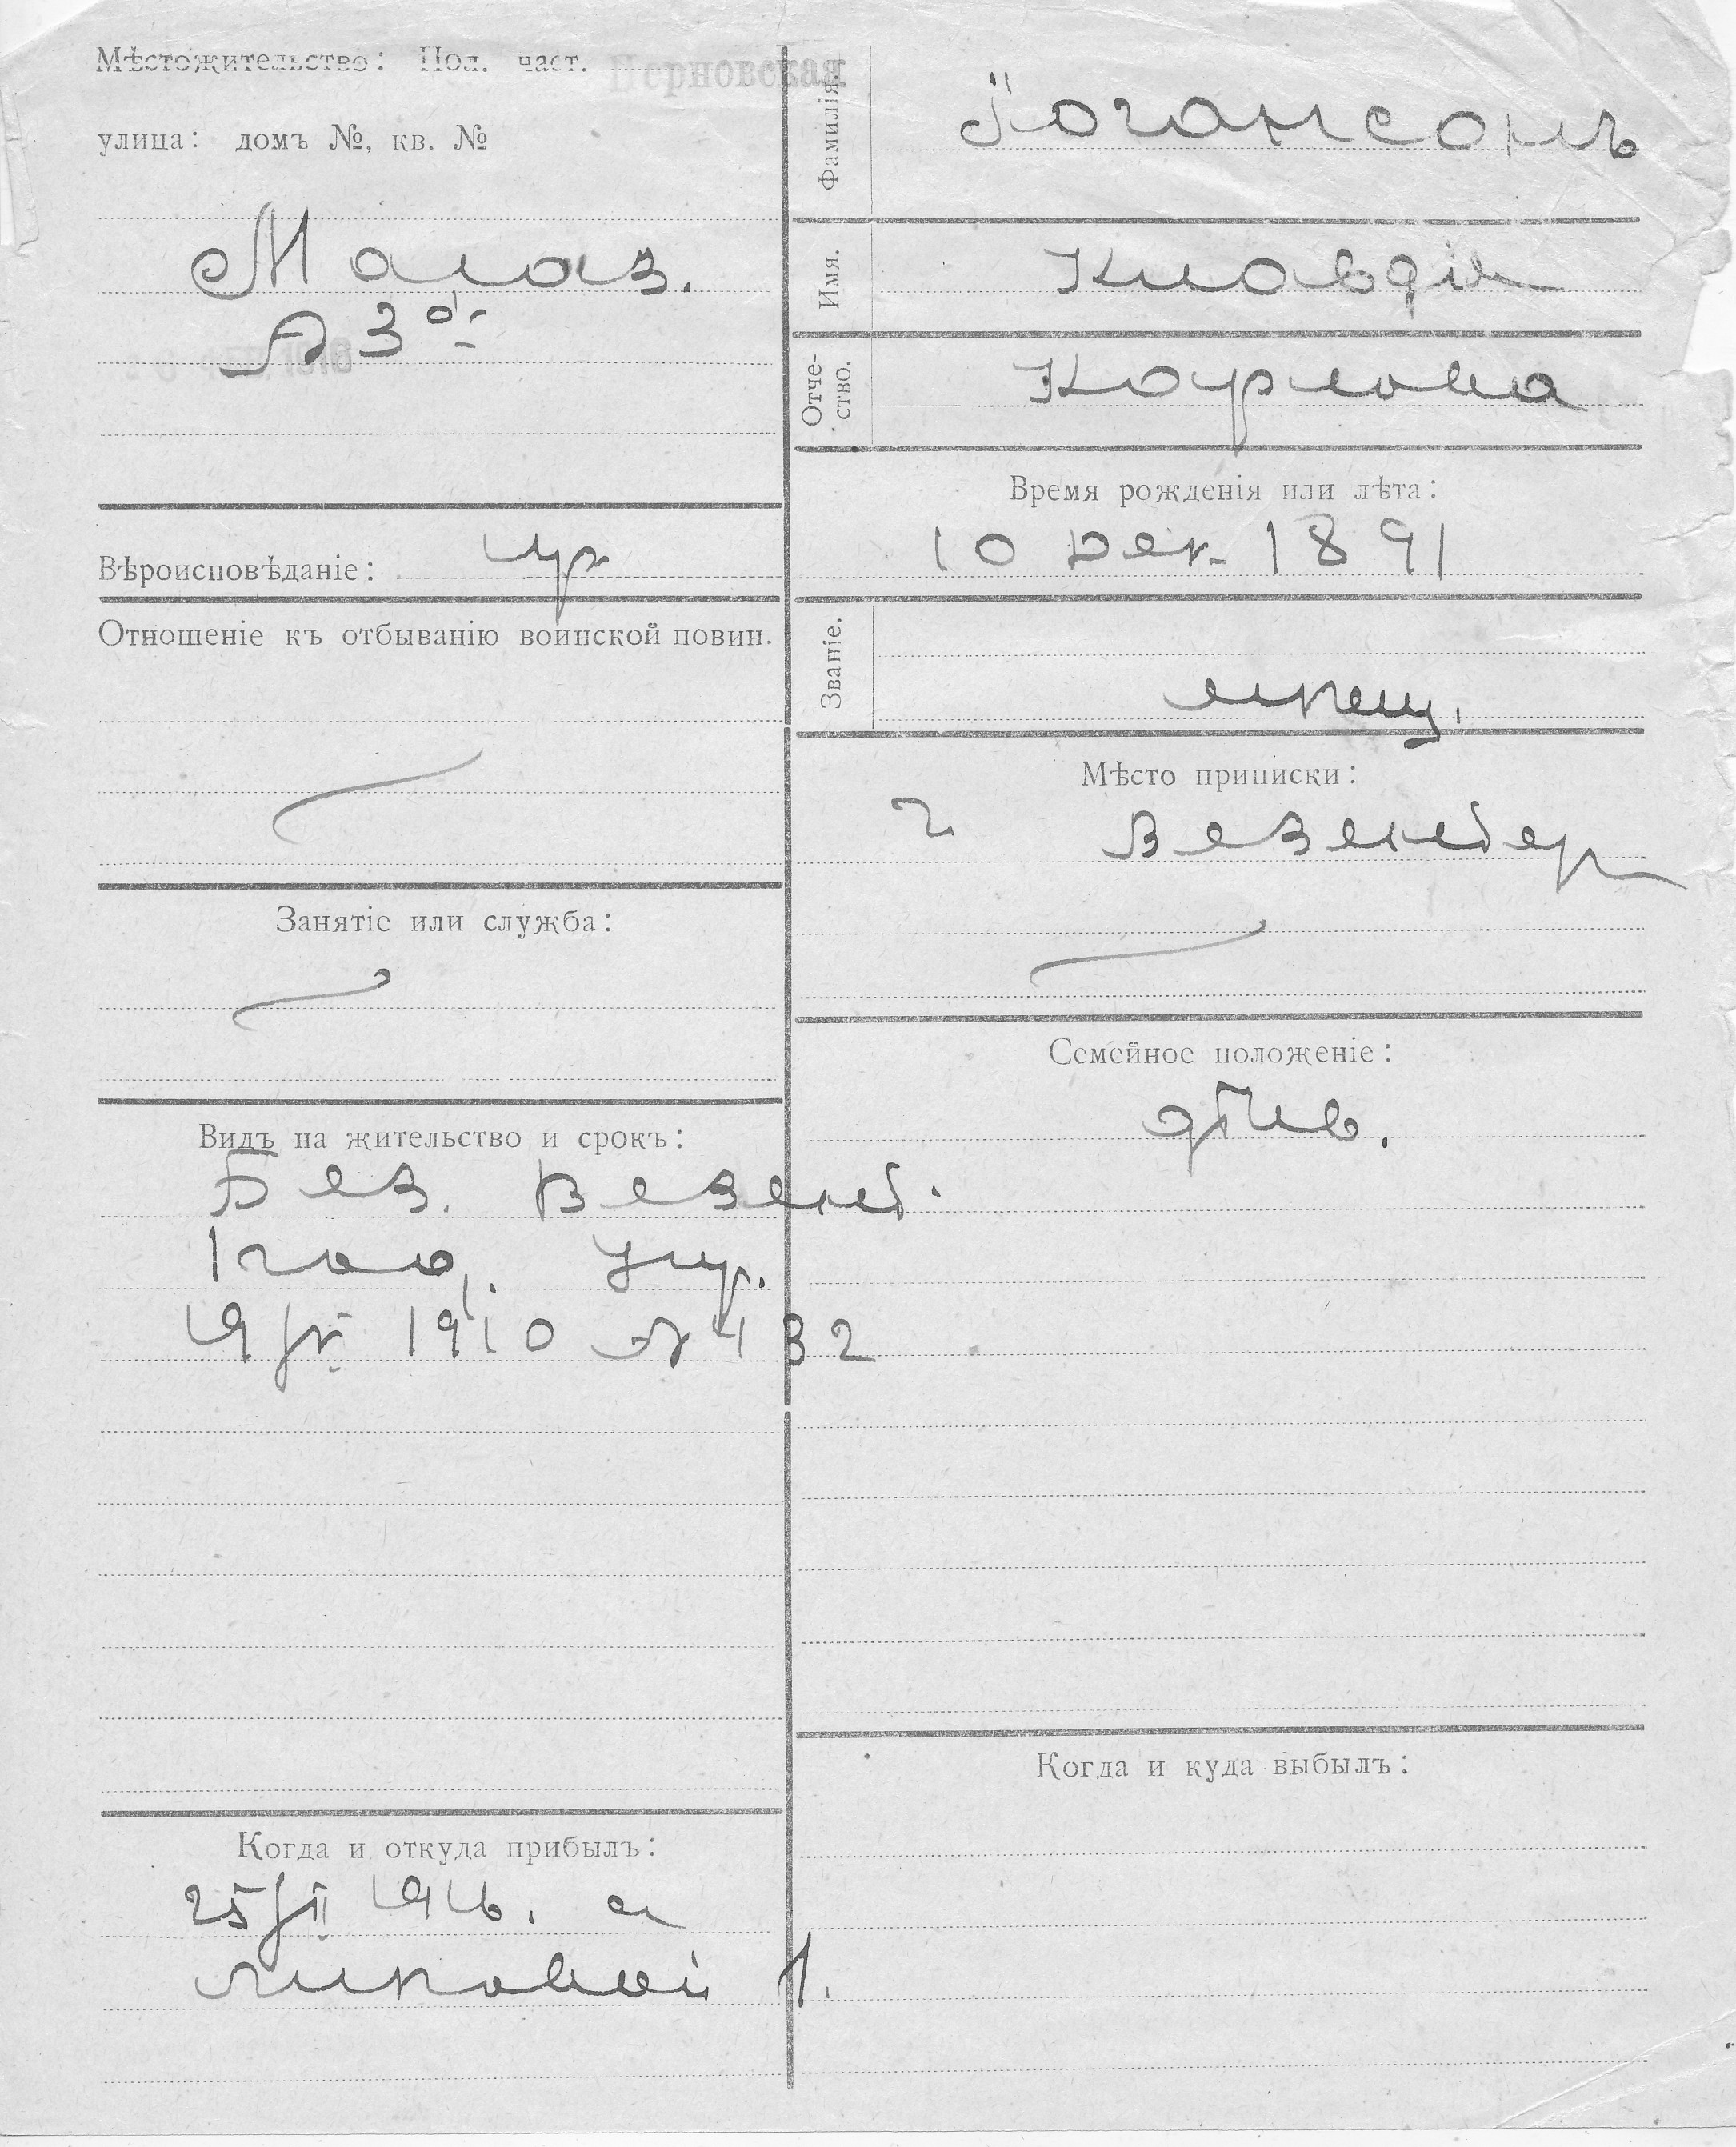 Мѣстожительство: Пол. част. Перновская
улица: домъ №, кв. №
Магаз.
А 3
Вѣроисповѣданіе:
Отношеніе къ отбыванію воинской повин.
Занятіе или служба:
Видъ на жительство и срокъ:
Без. Везенб.
19/IV 1910 № 432
Когда и откуда прибылъ:
25/II 1916. с
Липовой 1.
Фамилія. Іогансонъ
Имя. Клавдія
Отче-
ство. Карлова
Время рожденія или лѣта:
10 Дек. 1891
Званіе.
мѣщ.
Мѣсто приписки:
г Везенбер
Семейное положеніе:
дѣв.
Когда и куда выбылъ: